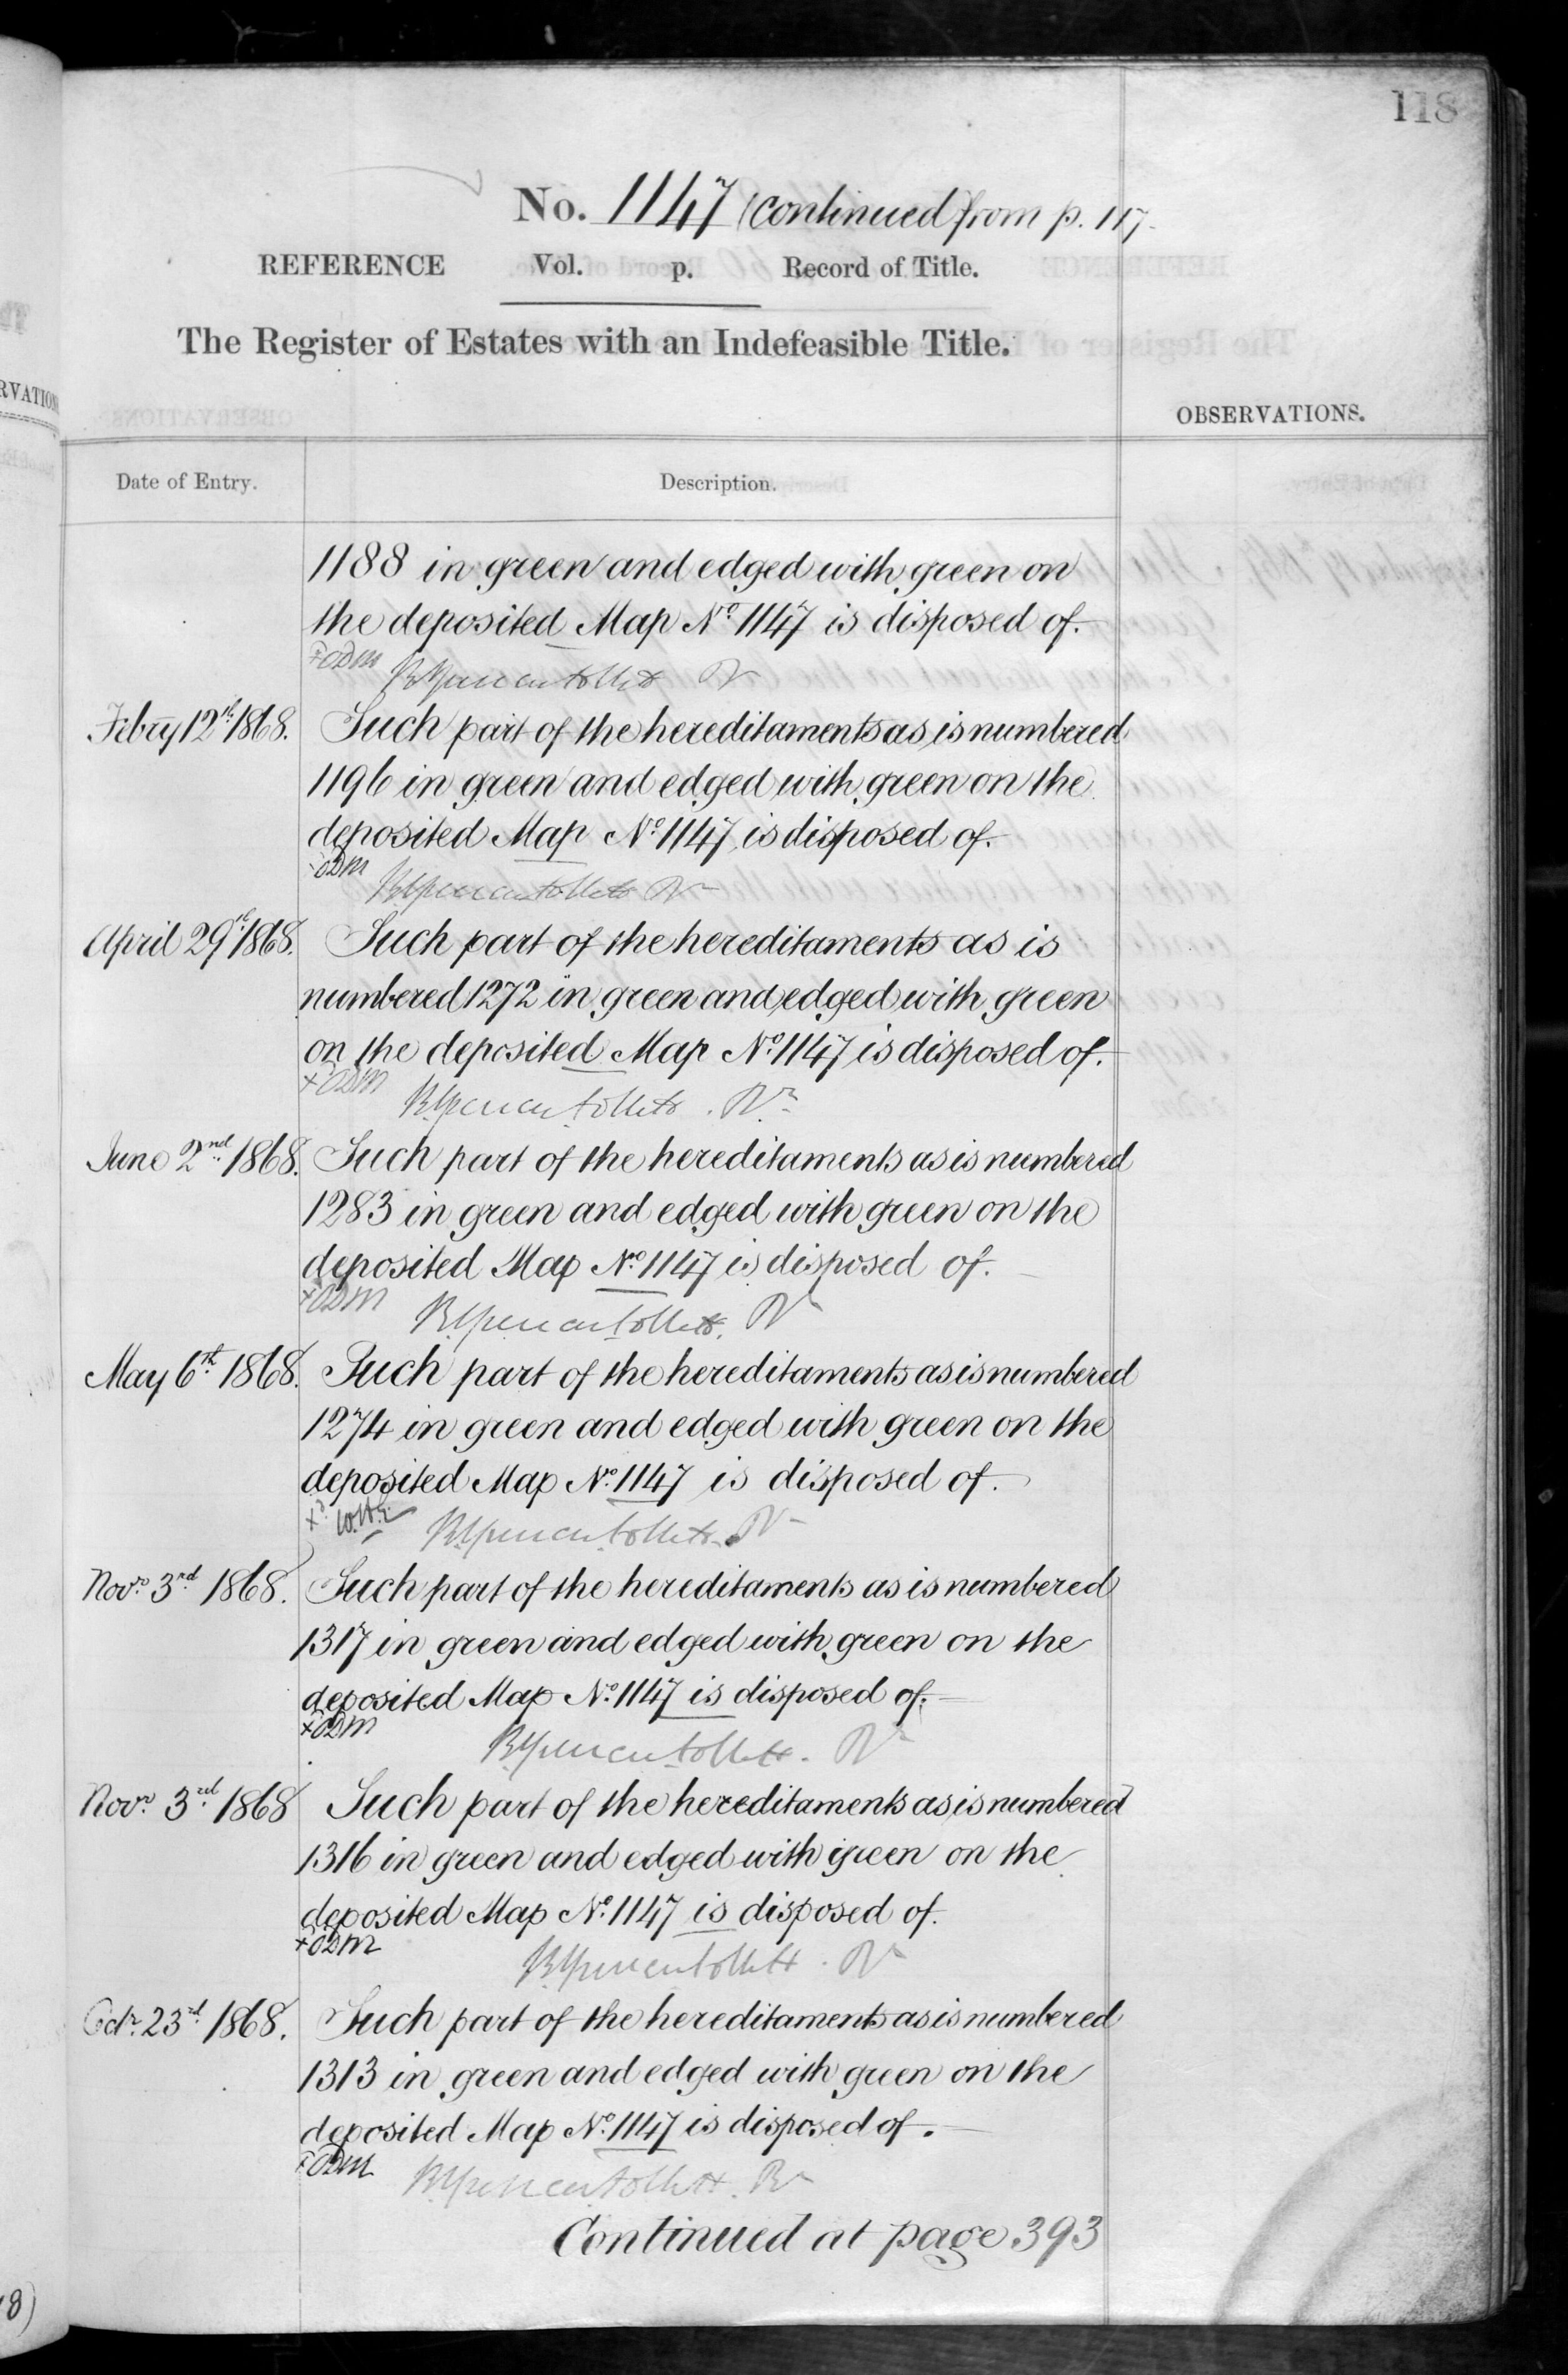 118
No. 1147 (continued from p. 117.
REFERENCE Vol. p. Record of Title.
The Register of Estates with an Indefeasible Title.
OBSERVATIONS.
Date of Entry. Description.
1188 in green and edged with green on
the deposited Map No. 1147 is disposed of.
ODM
Febry 12th 1868. Such part of the hereditaments as is numbered
1196 in green and edged with green on the
deposited Map No. 1147 is disposed of.
ODM
April 29th 1868. Such part of the hereditaments as is
numbered 1272 in green and edged with green
on the deposited Map No. 1147 is disposed of.
x ODM
June 2nd 1868. Such part of the hereditaments as is numbered
1283 in green and edged with green on the
deposited Map No. 1147 is disposed of.
x ODM
May 6th 1868. Such part of the hereditaments as is numbered
1274 in green and edged with green on the
deposited Map No. 1147 is disposed of.
Novr. 3rd 1868. Such part of the hereditaments as is numbered
1317 in green and edged with green on the
deposited Map No. 1147 is disposed of.
x ODM
Novr. 3rd 1868 Such part of the hereditaments as is numbered
1316 in green and edged with green on the
deposited Map No. 1147 is disposed of.
x ODM
Octr. 23rd 1868. Such part of the hereditaments as is numbered
1313 in green and edged with green on the
deposited Map No. 1147 is disposed of.
ODM
Continued at page 393